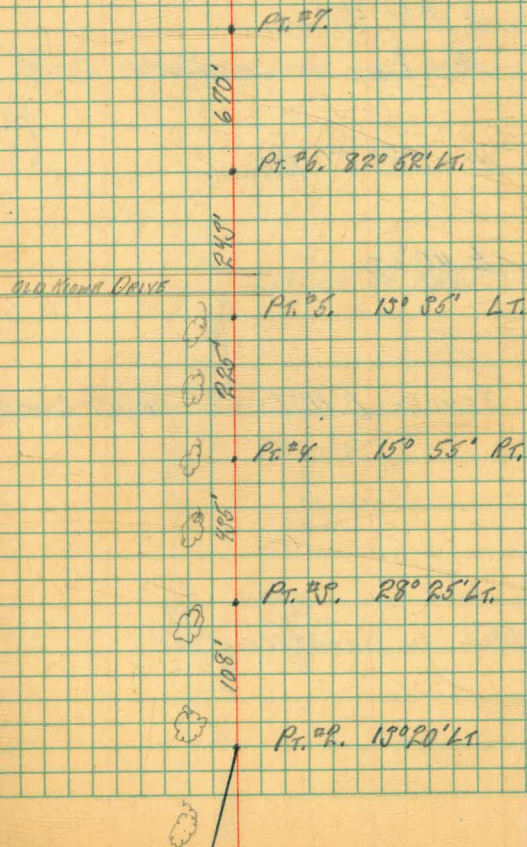 PT. #7.
670'
PT. #6. 82° 52' LT.
243'
OLD KIOWA DRIVE
PT. #5. 13° 35' LT.
225'
PT. #4. 15° 55' RT.
PT. #3. 28° 25' LT.
108'
PT. #2. 13° 20' LT